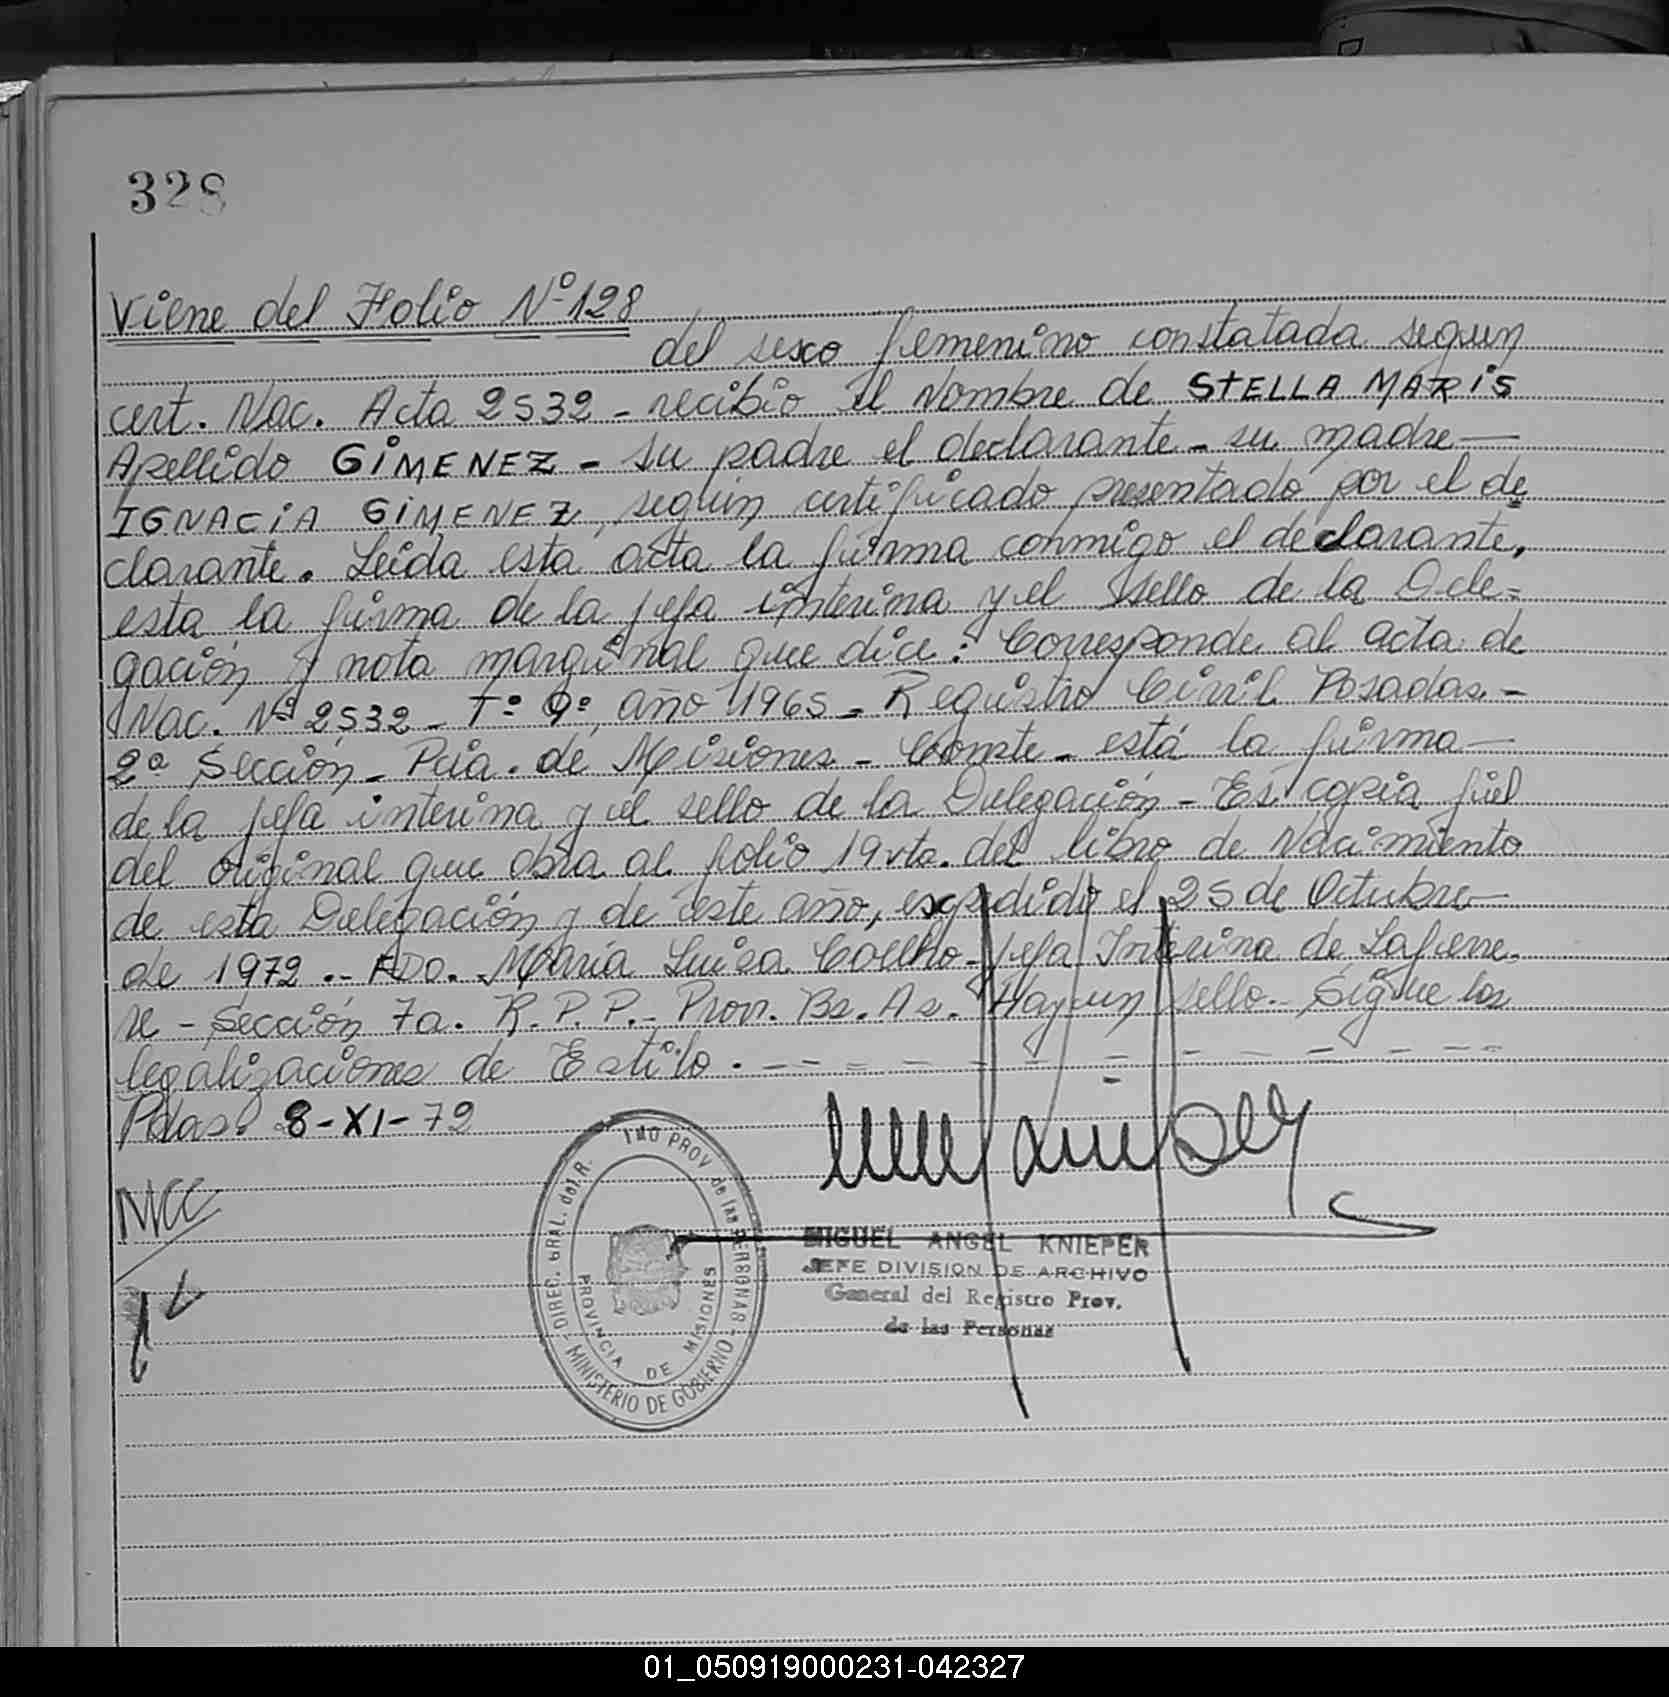 328
Viene del Folio Nº 128
del sexo femenino constatada segun
cert. Nac. Acta 2532 - recibio el Nombre de STELLA MARIS
Apellido GIMENEZ - su padre el declarante - su madre —
IGNACIA GIMENEZ, según certificado presentado por el de
clarante. Leida esta acta la firma conmigo el declarante,
esta la firma de la jefa interina y el sello de la Dele=
gación y nota marginal que dice: Corresponde al acta de
Nac. Nº 2532 - Tº 9º, año 1965 - Registro Civil Posadas -
2ª Sección - Pcia. de Misiones - Conste - está la firma —
de la jefa interina y el sello de la Delegación - Es copia fiel
del original que obra al folio 19 vto. del libro de Nacimiento
de esta Delegación y de este año, expedido el 25 de Octubre —
de 1972 .- FDO. María Luisa Coelho - jefa Interina de Laferre-
re - Sección 7a. R.P.P. - Prov. Bs. As. Hay un sello. - Sigue las
legalizaciones de Estilo. - - - - - - - - - - -
Pdas. 8-XI-72
DIREC. GRAL. del R. PROV de las PERSONAS - MINISTERIO DE GOBIERNO -
PROVINCIA DE MISIONES
MIGUEL ANGEL KNIEPER
JEFE DIVISION DE ARCHIVO
General del Registro Prov.
de las Personas
01_050919000231-042327